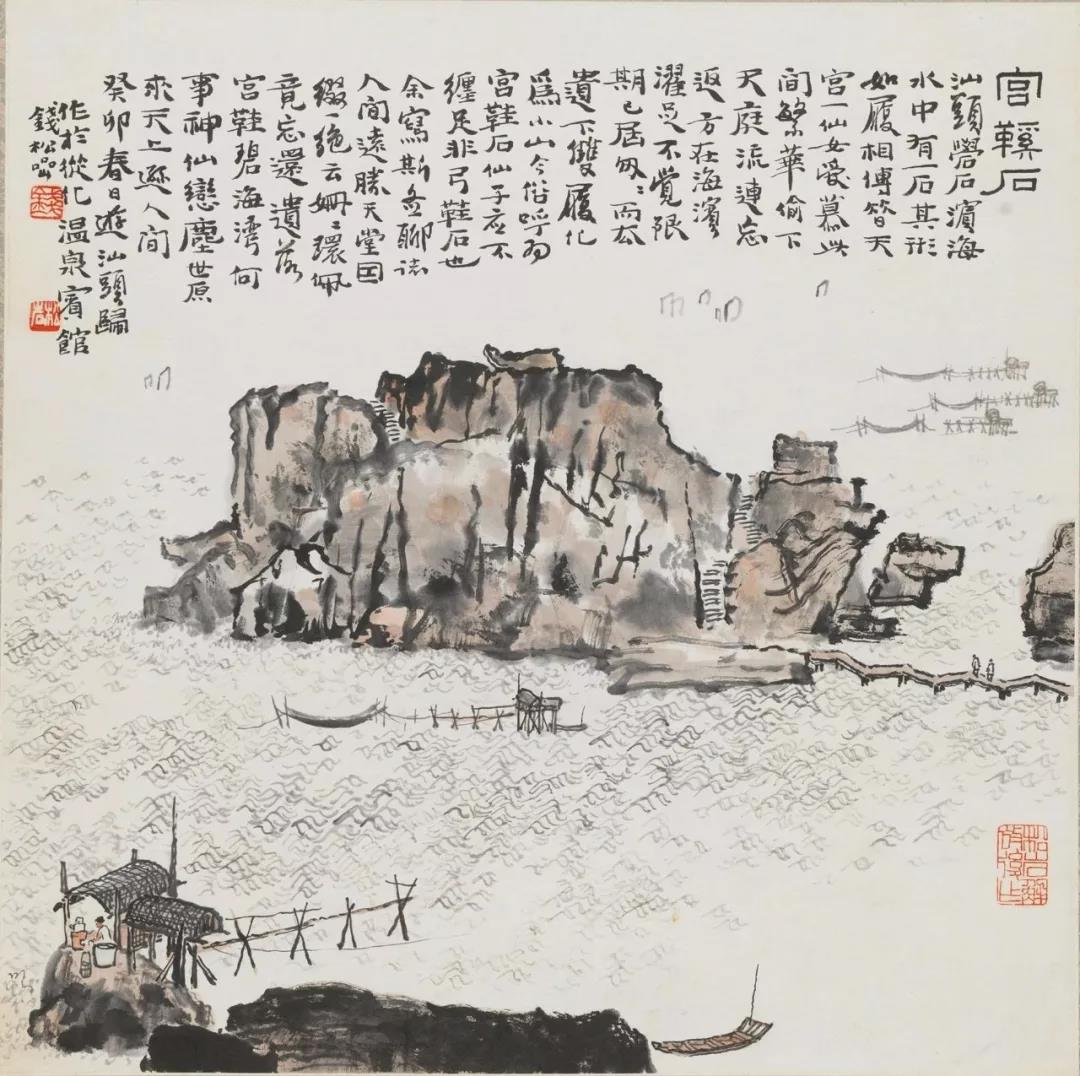 宫鞵石
汕頭礐石濱海
水中有一石其形
如履相傳昔天
宫一仙女愛慕此
間繁華偷下
天庭流連忘
返方在海濱
濯足不覺限
期已屆匆匆而去
遺下雙履化
爲小山今俗呼为
宫鞋石仙子应不
纏足非弓鞋石也
余寫斯畫聊誌
人間遠勝天堂因
綴一絶云姍姍環佩
竟忘還遺落
宫鞋碧海湾何
事神仙戀塵世原
來天上遜人间
癸卯春日遊汕頭歸
作於從化温泉賓館
錢松嵒